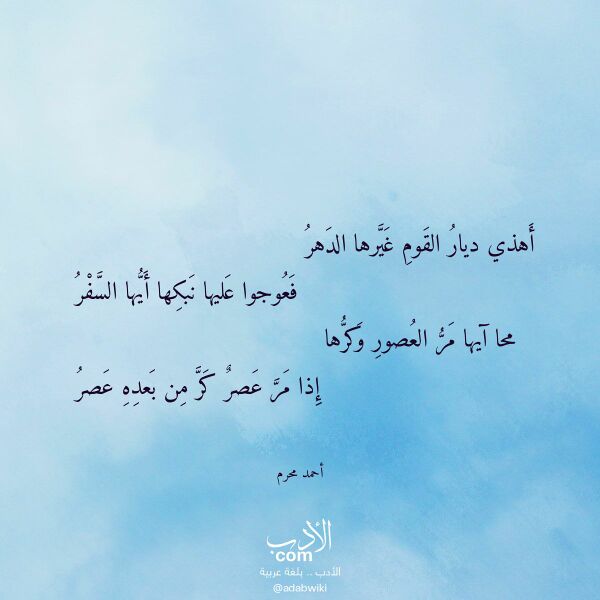 أَهذي ديارُ القَومِ غَيَّرها الدَهرُ
فَعُوجوا عَليها نَبكِها أَيُّها السَّفْرُ
محا آيها مَرُّ العُصورِ وَكَرُّها
إِذا مَرَّ عَصرٌ كَرَّ مِن بَعدِهِ عَصرُ
أحمد محرم
الأدب
com
الأدب .. بلغة عربية
@adabwiki